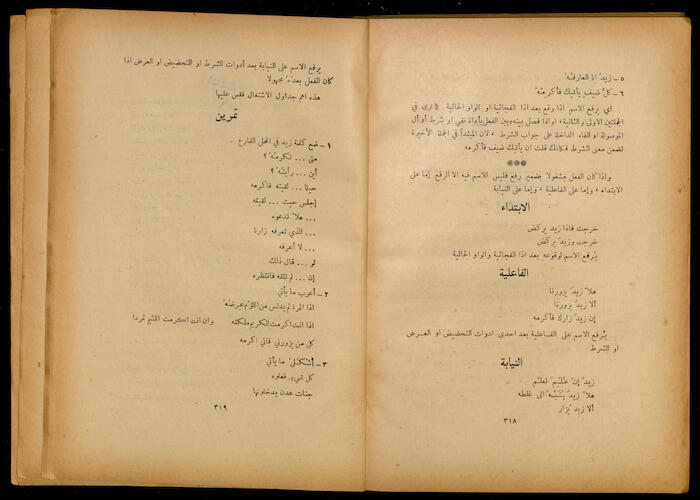 ٥ – زيدٌ انا العارفُه
٦ – كلُّ ضيف يأتيك فأكرمه
أي يرفع الاسم اذا وقع بعد اذا الفجائية او الواو الحالية كما ترى في
الجملتين الاولى والثانية، او اذا فصل بينه وبين الفعل بأداة نفي او شرط او أل
الموصولة او الفاء الداخلة على جواب الشرط، لان المبتدأ في الجملة الأخيرة
تضمن معنى الشرط فكانك قلت ان يأتك ضيف فأكرمه
***
واذا كان الفعل مشغولا بضمير رفع فليس للاسم فيه الا الرفع إما على
الابتداء، وإما على الفاعلية، وإما على النيابة
الابتداء
خرجت فاذا زيد يركض
خرجت وزيدٌ يركض
يُرفع الاسم لوقوعه بعد اذا الفجائية والواو الحالية
الفاعلية
هلا زيدٌ يزورنا
ألا زيدٌ يزورنا
إن زيدٌ زارك فأكرمه
يُرفع الاسم على الفاعلية بعد احدى ادوات التحضيض او العرض
او الشرط
النيابة
زيدٌ إن عُلِّمَ تعلَّم
هلا زيدٌ يُنَبَّهُ الى غلطه
ألا زيدٌ يُزار
٣١٨
يرفع الاسم على النيابة بعد أدوات الشرط او التحضيض او العرض اذا
كان الفعل بعدَهُ مجهولا
هذه اهم جداول الاشتغال فقس عليها
تمرين
١ – ضع كلمة زيد في المحل الفارغ
متى ... تكرمُه ؟
أين ... رأيتَه ؟
حيثما ... لقيته فاكرمه
إجلس حيث ... لقيته
... هلا تدعوه
... الذي تعرفه زارنا
... لا أعرفه
لو ... قال ذلك
إن ... لم تلقه فانتظره
٢ – أعرب ما يأتي
اذا المرءُ لم يدنس من اللؤم عِرضُهُ
اذا انت اكرمت الكريم ملكته وان انت اكرمت اللئيم تمردا
كل من يزورني فاني اكرمه
٣ – أشكُل ما يأتي
كل شيءٍ فعلوه
جنات عدن يدخلونها
٣١٩